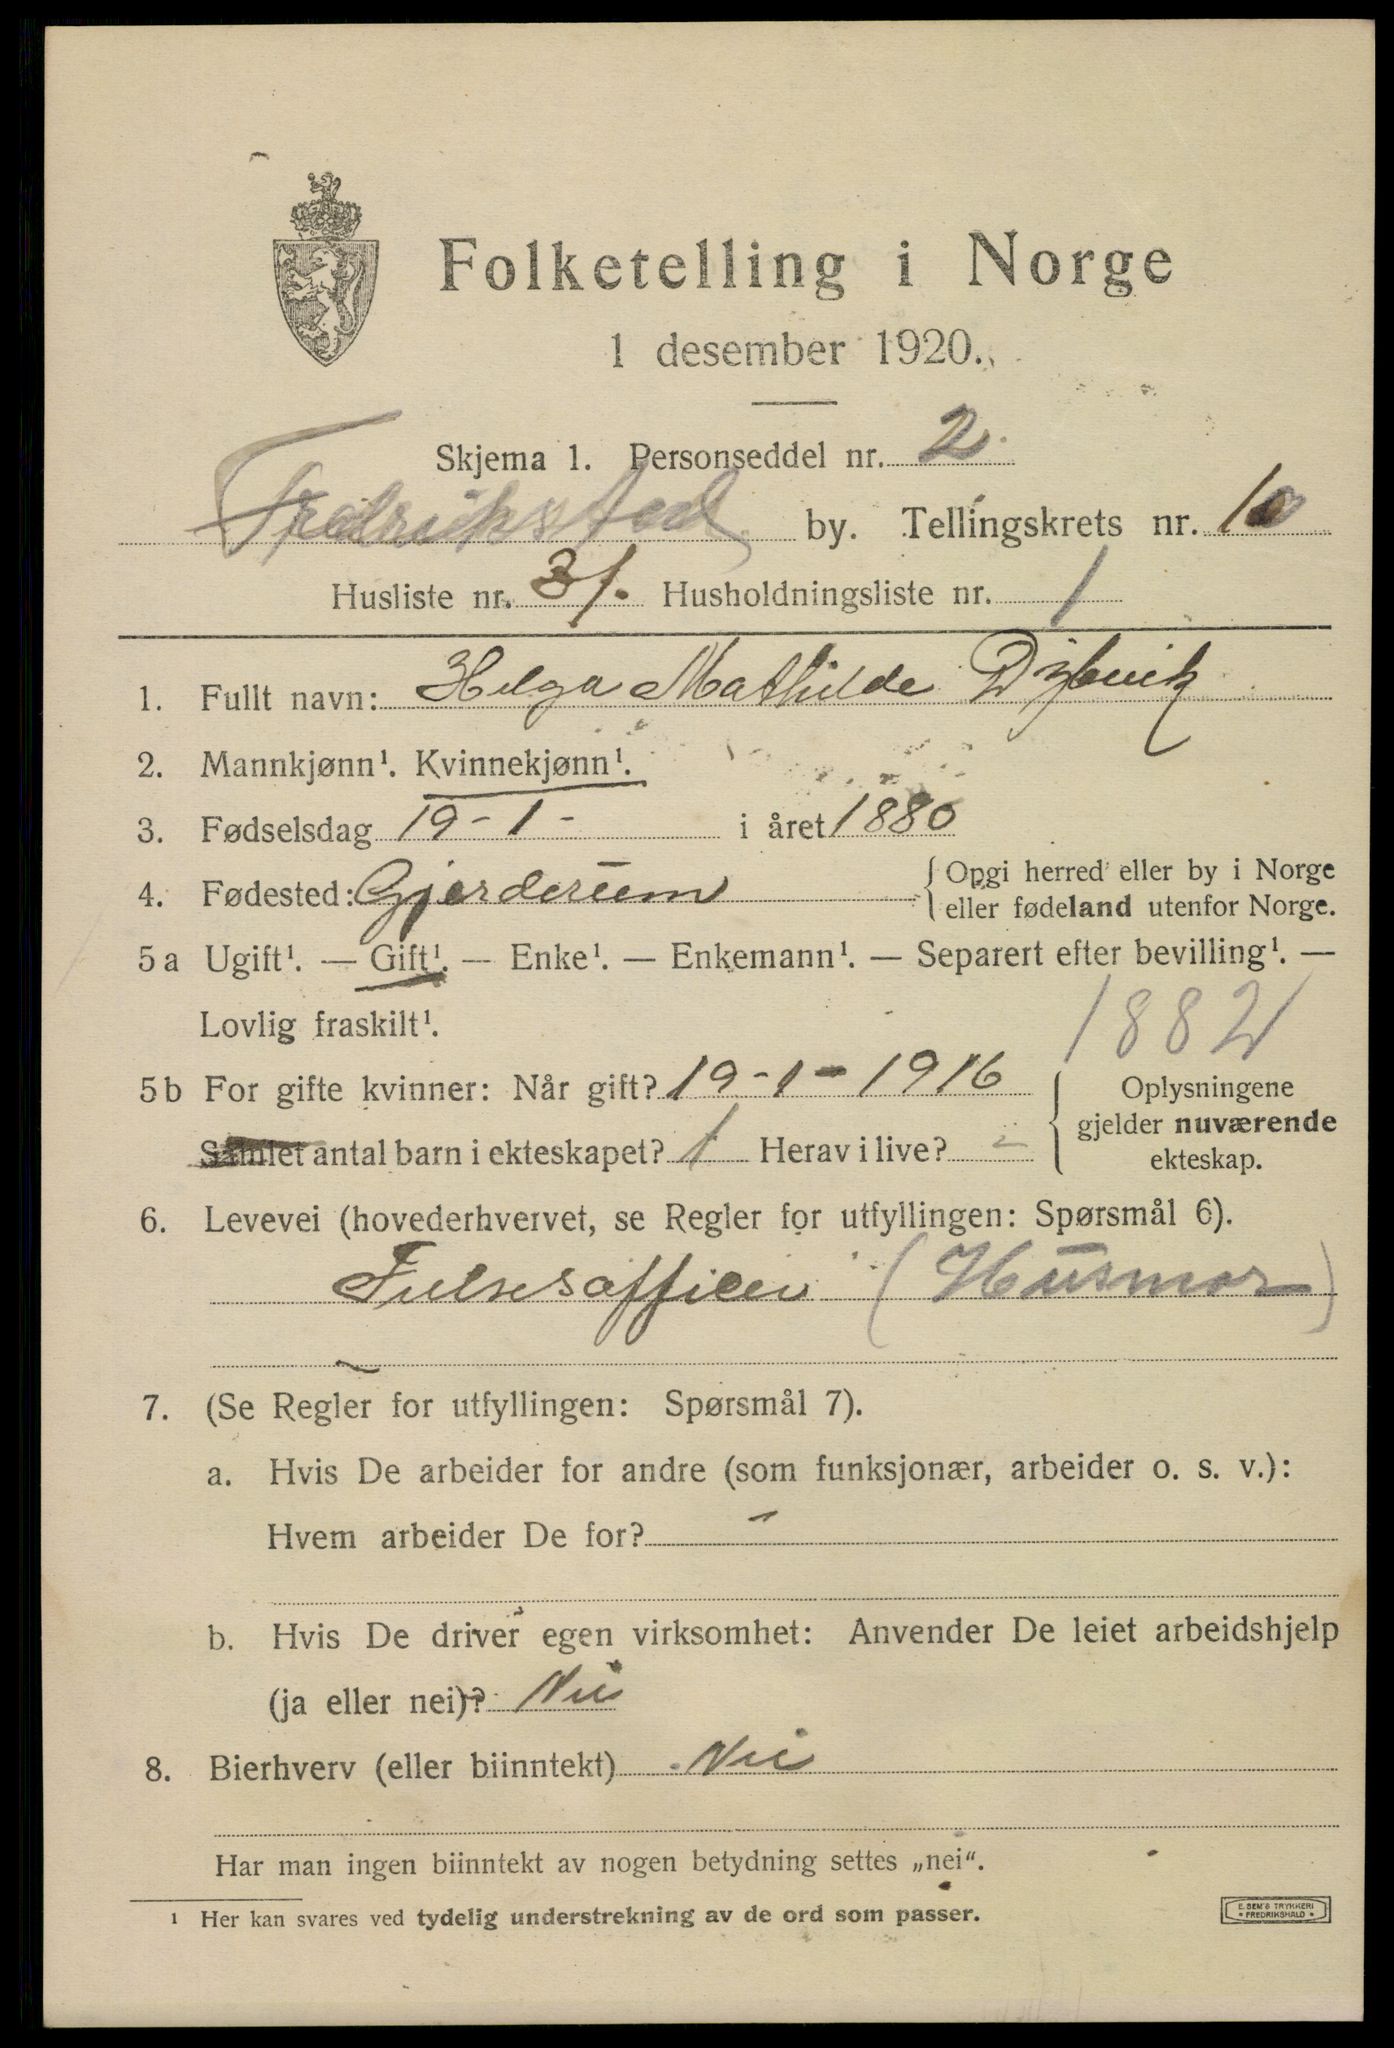 Folketelling i Norge
1 desember 1920.
Skjema 1. Personseddel nr. 2.
Fredrikstad by. Tellingskrets nr. 10
Husliste nr. 31. Husholdningsliste nr. 1
1. Fullt navn: Helga Mathilde Dybvik
2. Mannkjønn¹. Kvinnekjønn¹.
3. Fødselsdag 19-1- i året 1880
4. Fødested: Gjerderum { Opgi herred eller by i Norge
eller fødeland utenfor Norge.
5a Ugift¹. — Gift¹. — Enke¹. — Enkemann¹. — Separert efter bevilling¹. —
Lovlig fraskilt¹.
1882
5b For gifte kvinner: Når gift? 19-1-1916
Samlet antal barn i ekteskapet? 1 Herav i live? -
{ Oplysningene
gjelder nuværende
ekteskap.
6. Levevei (hovederhvervet, se Regler for utfyllingen: Spørsmål 6).
(Husmor)
7. (Se Regler for utfyllingen: Spørsmål 7).
a. Hvis De arbeider for andre (som funksjonær, arbeider o. s. v.):
Hvem arbeider De for? -
b. Hvis De driver egen virksomhet: Anvender De leiet arbeidshjelp
(ja eller nei)? Nei
8. Bierhverv (eller biinntekt) Nei
Har man ingen biinntekt av nogen betydning settes „nei“.
¹ Her kan svares ved tydelig understrekning av de ord som passer.
E. SEM'S TRYKKERI
• FREDRIKSHALD •